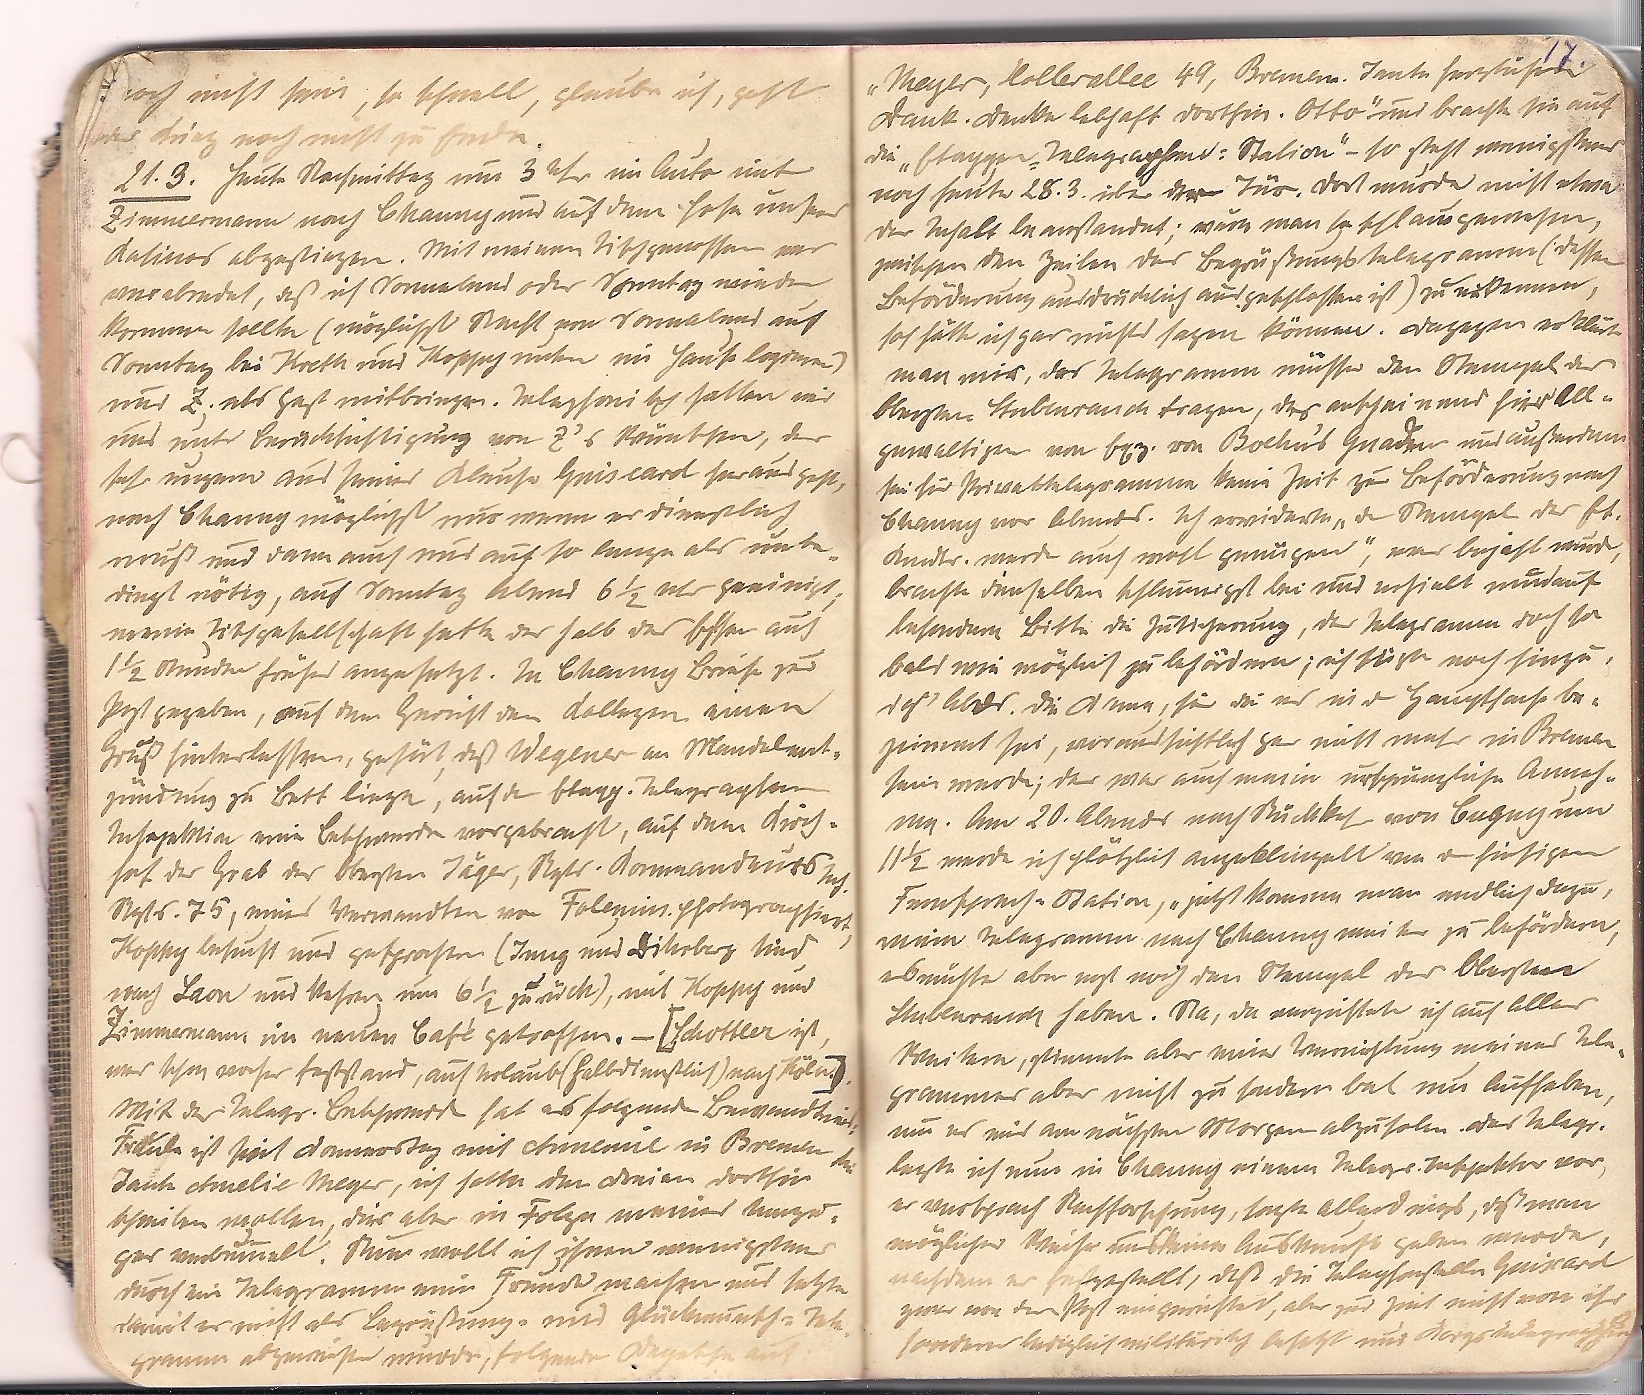 noch nicht sein, so schnell, glaube ich, geht
der Krieg noch nicht zu Ende.
21.3. Heute Nachmittag um 3 Uhr im Auto mit
Zimmermann nach Chauny und auf dem Hofe unseres
Kasinos abgestiegen. Mit meinen Tischgenossen war
verabredet, daß ich Sonnabend oder Sonntag wieder
kommen sollte (möglichst Nacht von Sonnabend auf
Sonntag bei Kreth und Hoppy unten im Hause logieren)
und Z. als Gast mitbringen. Telephonisch hatten wir
uns unter Berücksichtigung von Z's Wünschen, der
sehr ungern aus seiner Klause Guiscard herausgeht,
nach Chauny möglichst nur wenn er dienstlich
muß und dann auch nur auf so lange als unbe-
dingt nötig, auf Sonntag Abend 6½ Uhr geeinigt,
meine Tischgesellschaft hatte deshalb das Essen auf
1½ Stunden früher angesetzt. In Chauny Briefe zur
Post gegeben, auf dem Gericht den Kollegen einen
Gruß hinterlassen, gehört, daß Wegener an Mandelent-
zündung zu Bett liege, auf der Etapp. Telegraphen
Inspektion eine Beschwerde vorgebracht, auf dem Kirch-
hof das Grab des Obersten Jäger, Rgts. Kommandeurs Inf.
Rgts. 75, eines Verwandten von photographiert,
Hoppy besucht und gesprochen (Jung und sind
nach Laon und kehren um 6½ zurück), mit Hoppy und
Zimmermann im neuen Café getroffen. – [Schottler ist,
was schon vorher feststand, auf Urlaub (halbdienstlich) nach Köln].
Mit der Telegr. Beschwerde hat es folgende Bewandtnis:
ist seit Donnerstag mit Annemie in Bremen bei
Tante Amelie Meyer, ich hatte den Dreien dorthin
schreiben wollen, dies aber in Folge meines Umzu-
ges verbummelt. Nun wollt ich ihnen wenigstens
durch ein Telegramm eine Freude machen und setzte
damit es nicht als Begrüßungs- und Glückwunsch-Tele-
gramm abgewiesen würde, folgende Depesche auf:
17.
„Meyer, Hollerallee 49, Bremen. Tante herzlichen
Dank. Denke lebhaft dorthin. Otto" und brachte sie auf
die „Etappen-Telegraphen-Station" – so steht wenigstens
noch heute 28.3. über der Tür. Dort wurde nicht etwa
der Inhalt beanstandet; wäre man so schlau gewesen,
zwischen den Zeilen das Begrüßungstelegramm (dessen
Beförderung ausdrücklich ausgeschlossen ist) zu erkennen,
so hätte ich gar nichts sagen können. Dagegen erklärte
man mir, das Telegramm müsse den Stempel des
Obersten Stubenrauch tragen, des anscheinend hier All-
gewaltigen von Exz. von Boehn's Gnaden und außerdem
sei für Privattelegramme keine Zeit zur Beförderung nach
Chauny vor Abends. Ich erwiderte „der Stempel des Et.
Kmdtr. werde auch wohl genügen", was bejaht wurde,
brachte denselben schleunigst bei und erhielt nun auf
besondere Bitte die Zusicherung, das Telegramm doch so
bald wie möglich zu befördern; ich fügte noch hinzu,
daß Abds. die Dame, für die es in d. Hauptsache be-
stimmt sei, voraussichtlich gar nicht mehr in Bremen
sein werde; das war auch meine ursprüngliche Annah-
me. Am 20. Abends nach Rückkehr von Cugny um
11½ werde ich plötzlich angeklingelt von d. hiesigen
Fernsprech-Station, „jetzt komme man endlich dazu,
mein Telegramm nach Chauny weiter zu befördern,
es müsste aber erst noch den Stempel des Obersten
Stubenrauch haben. Na, da verzichtete ich auf alles
Weitere, stimmte aber einer Vernichtung meines Tele-
grammes aber nicht zu sondern bat um Aufheben,
um es mir am nächsten Morgen abzuholen. Das Telegr.
legte ich nun in Chauny einem Telegr. Inspektor vor,
er versprach Nachforschung, sagte allerdings, daß man
möglicher Weise uns keine Auskunft geben werde,
nachdem er festgestellt, daß die Telephonstelle Guiscard
zwar von der Post eingerichtet, aber zur Zeit nicht von ihr
sondern lediglich militärisch besetzt und Kriegstelegraphen